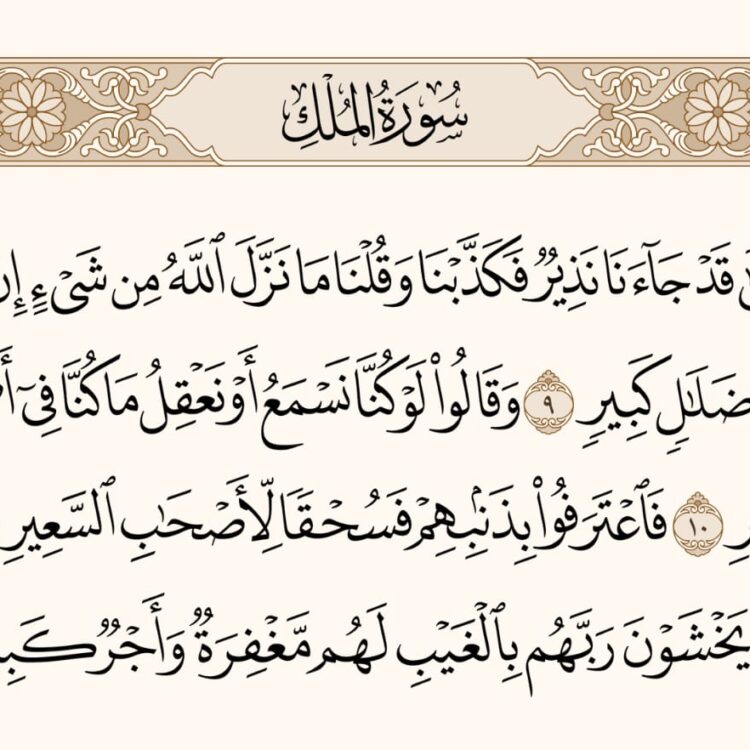 سُورَةُ الْمُلْكِ
قَدْ جَآءَنَا نَذِيرٌ فَكَذَّبْنَا وَقُلْنَا مَا نَزَّلَ ٱللَّهُ مِن شَىْءٍ إِنْ
ضَلَٰلٍ كَبِيرٍ ٩ وَقَالُوا۟ لَوْ كُنَّا نَسْمَعُ أَوْ نَعْقِلُ مَا كُنَّا فِىٓ
١٠ فَٱعْتَرَفُوا۟ بِذَنۢبِهِمْ فَسُحْقًا لِّأَصْحَٰبِ ٱلسَّعِيرِ
يَخْشَوْنَ رَبَّهُم بِٱلْغَيْبِ لَهُم مَّغْفِرَةٌ وَأَجْرٌ